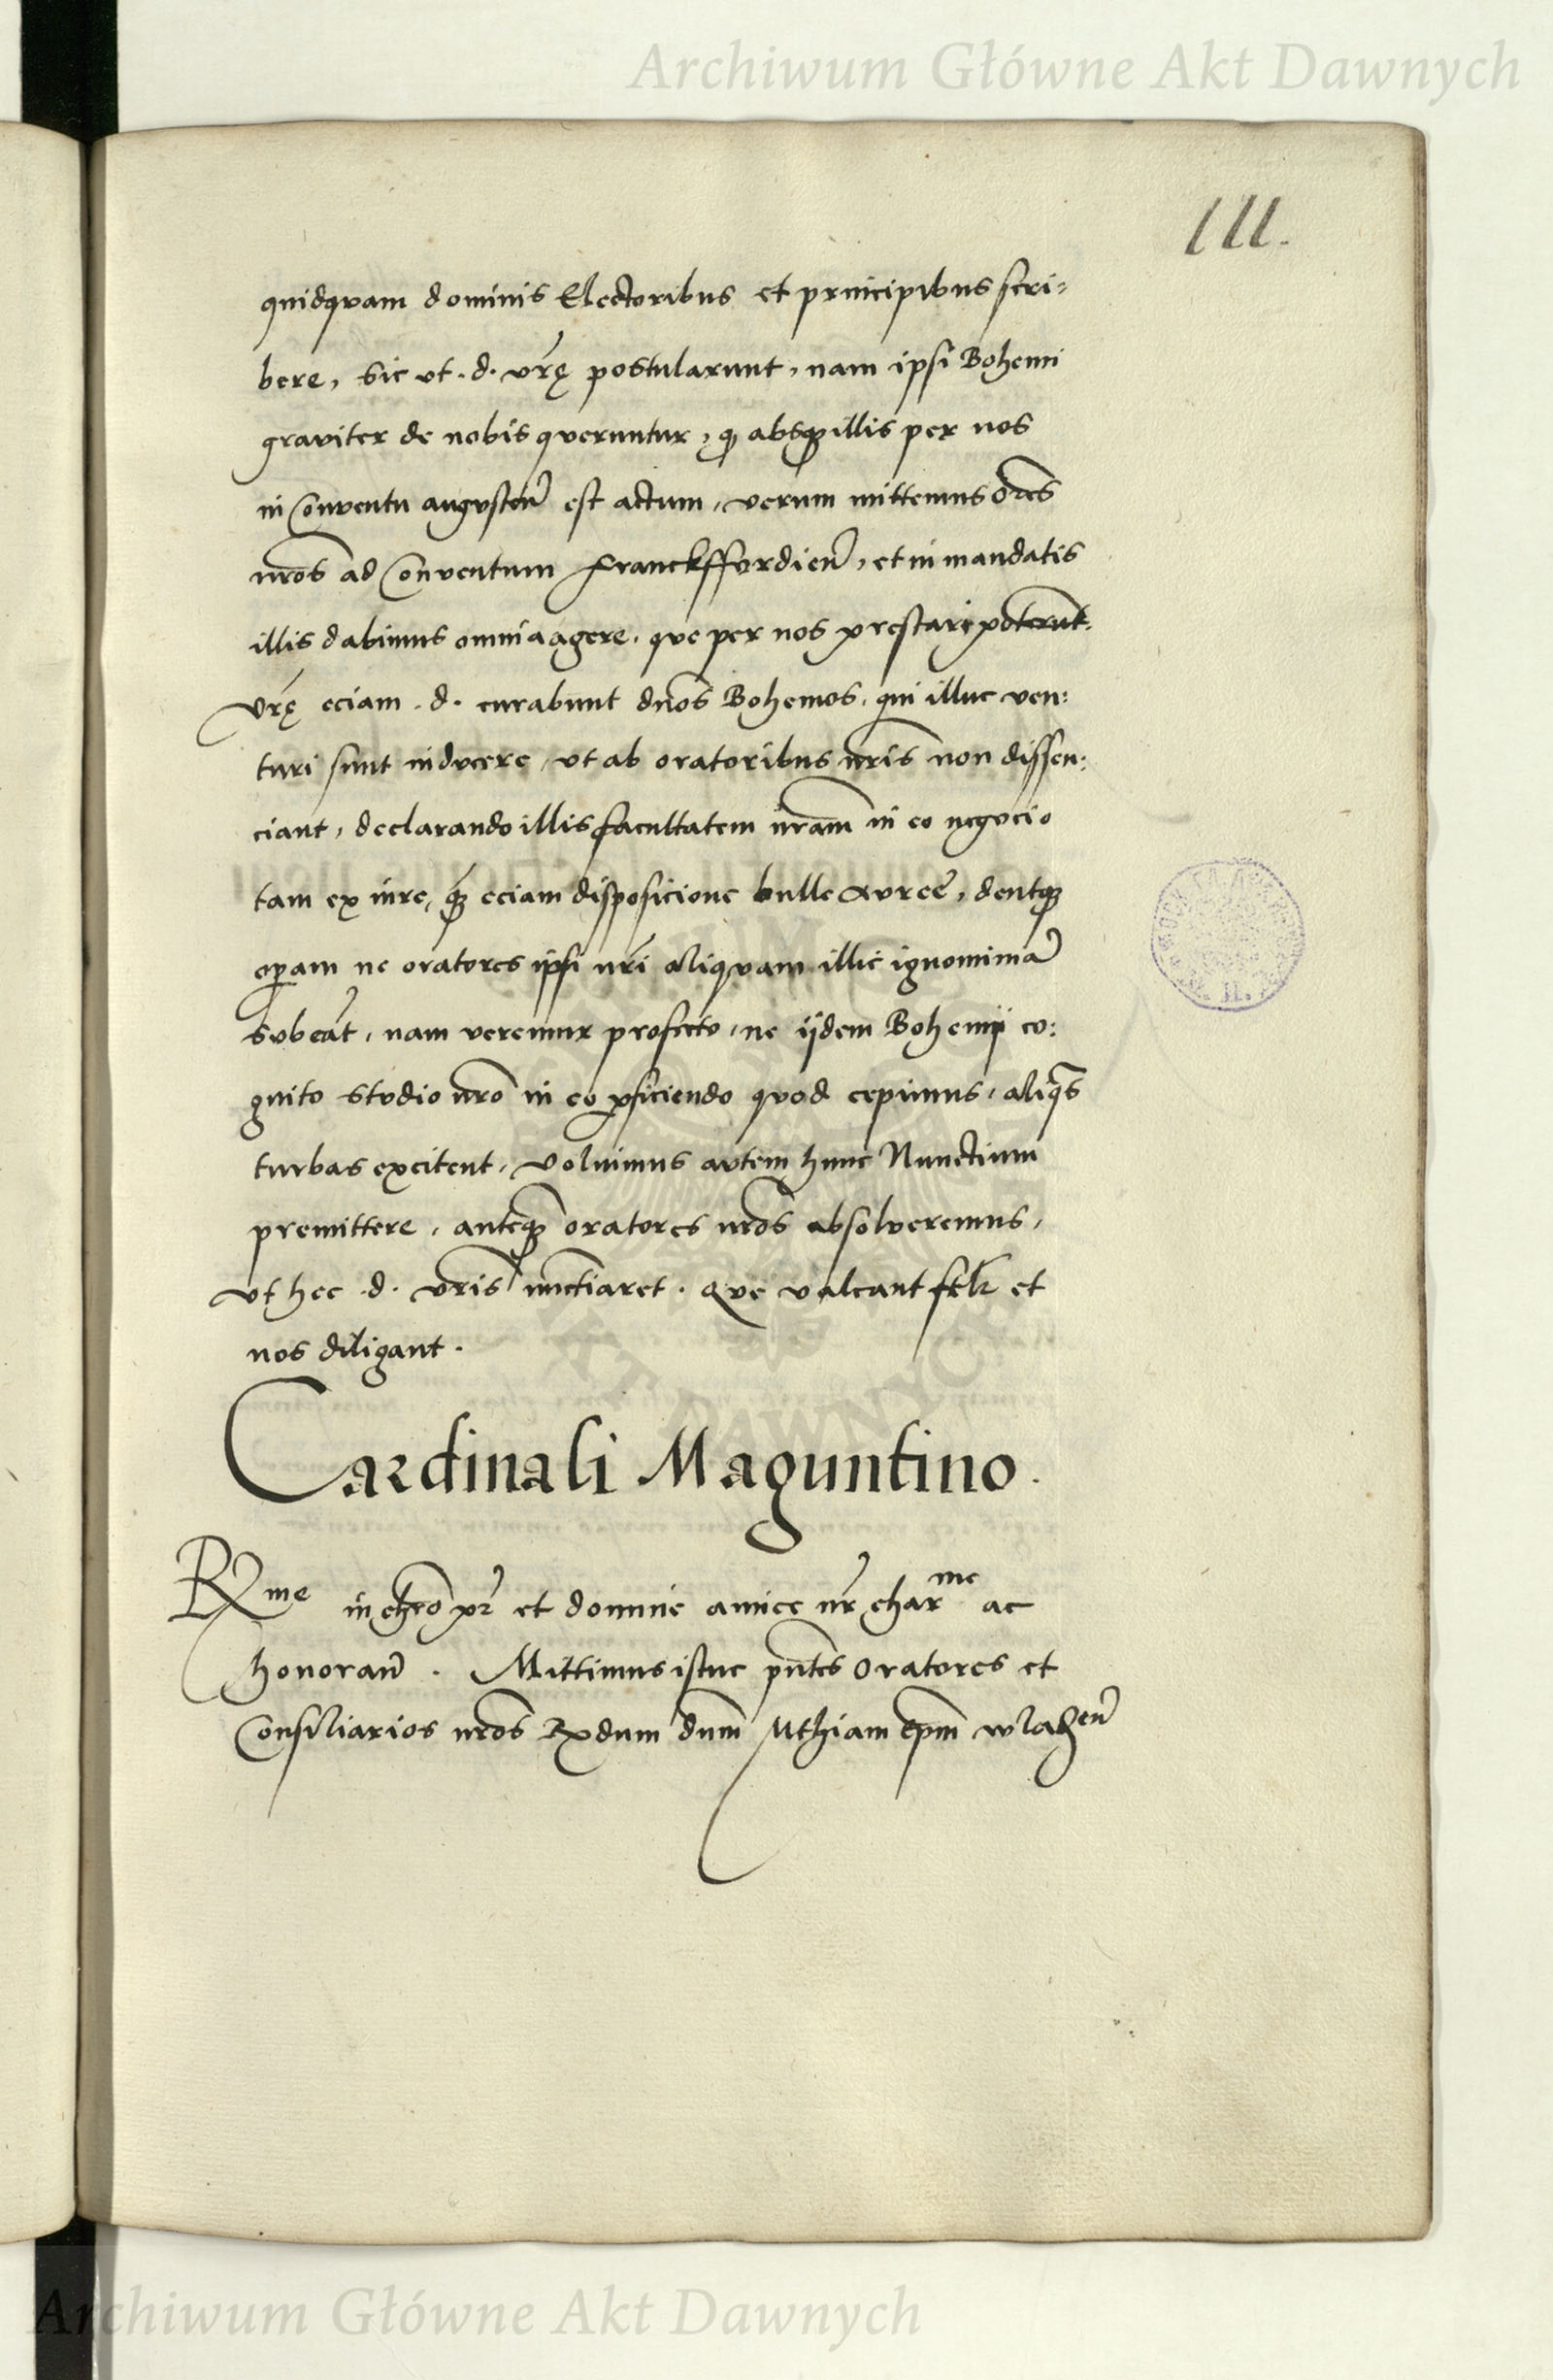 Archiwum Główne Akt Dawnych
111.
quidquam dominis Electoribus et principibus scri=
bere, sic ut .d. vrę postularunt, nam ipsi Bohemi
graviter de nobis queruntur, q absq illis per nos
in Conventu augusten est actum, verum mittemus ores
nros ad Conventum Franckffordien, et in mandatis
illis dabimus omnia agere, que per nos prestari poterunt.
Vrę eciam .d. curabunt dnos Bohemos, qui illuc ven:
turi sunt inducere, ut ab oratoribus nris non dissen:
ciant, declarando illis facultatem nram in eo negocio
tam ex iure, q eciam disposicione bulle auree, dentq
opam ne oratores ipsi nri aliquam illic ignominia
subeat, nam veremur profecto, ne ijdem Bohemij co:
gnito studio nro in eo pficiendo quod cepimus, aliqs
turbas excitent, Voluimus autem hunc Nunctium
premittere, anteq oratores nros absolveremus,
ut hec .d. vris nunctiaret. Que valeant felr et
nos diligant.
Cardinali Maguntino.
Rme in chro pr et domine amice nr charme ac
honoran. Mittimus istuc pntes Oratores et
Consiliarios nros Rdum dnm Mthiam epm wladien
AKT DAWNYCH
Archiwum Główne Akt Dawnych